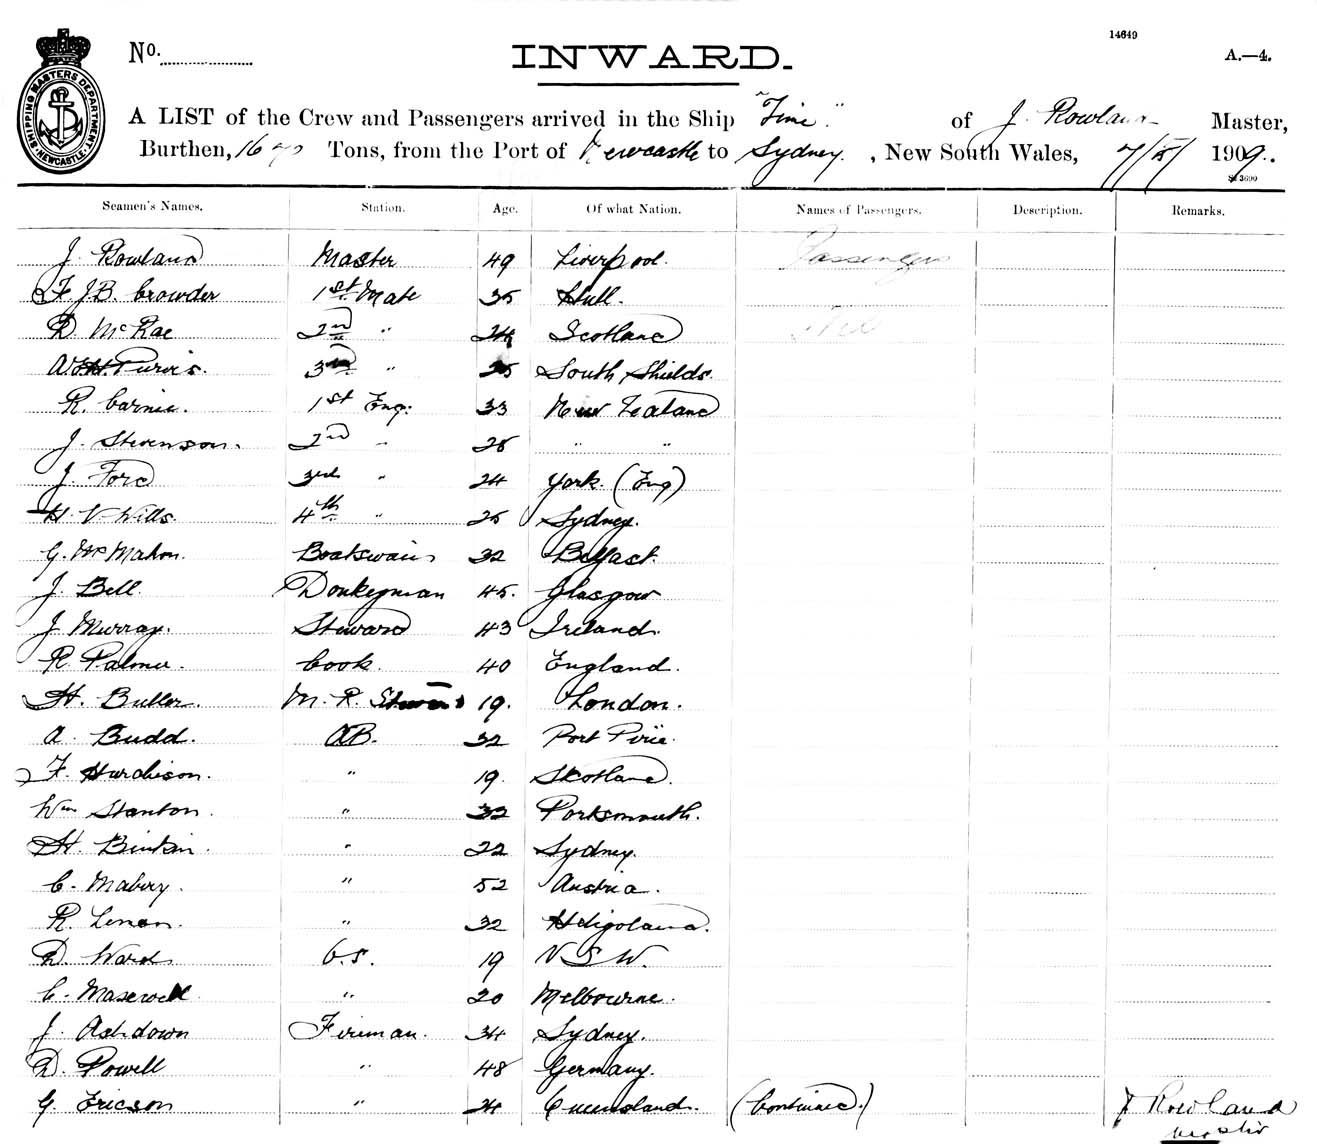 14649
No.
INWARD.
A.—4.
SHIPPING MASTERS DEPARTMENT NEWCASTLE
A LIST of the Crew and Passengers arrived in the Ship of J. Rowland Master,
Burthen, Tons, from the Port of Newcastle to Sydney. , New South Wales, 1909.
St 3690
Seamen's Names. Station. Age. Of what Nation. Names of Passengers. Description. Remarks.
J. Rowland Master 49 Liverpool. Passengers
F. J. B. Crowder 1st Mate 35 Hull.
D. McRae 2nd " 24 Scotland Nil
Purvis. 3rd " 25 South Shields.
R. Cairnie. 1st Eng. 33 New Zealand
J. Stevenson. 2nd " 28 " "
J. Ford 3rd " 24 York. (Eng)
H. V. Wills. 4th " 25 Sydney.
G. McMahon. Boatswain 32 Belfast.
J. Bell. Donkeyman 45. Glasgow
J. Murray. Steward 43 Ireland.
R. Palmer. Cook. 40 England.
H. Butler. M. R. Steward 19. London.
A. Budd. AB. 32 Port Pirie.
F. Hurchison. " 19. Skotland.
Wm Stanton. " 32 Portsmouth.
H. Binkin. " 22 Sydney.
C. Mabery. " 52 Austria.
R. Lenon. " 32 Heligoland.
D. Ward O.S. 19 N S W.
C. Maxwell " 20 Melbourne.
J. Ashdown Fireman. 34 Sydney.
D. Powell " 48 Germany.
G. Ericson " 24 Queensland. (Continued.) J Rowland
Master